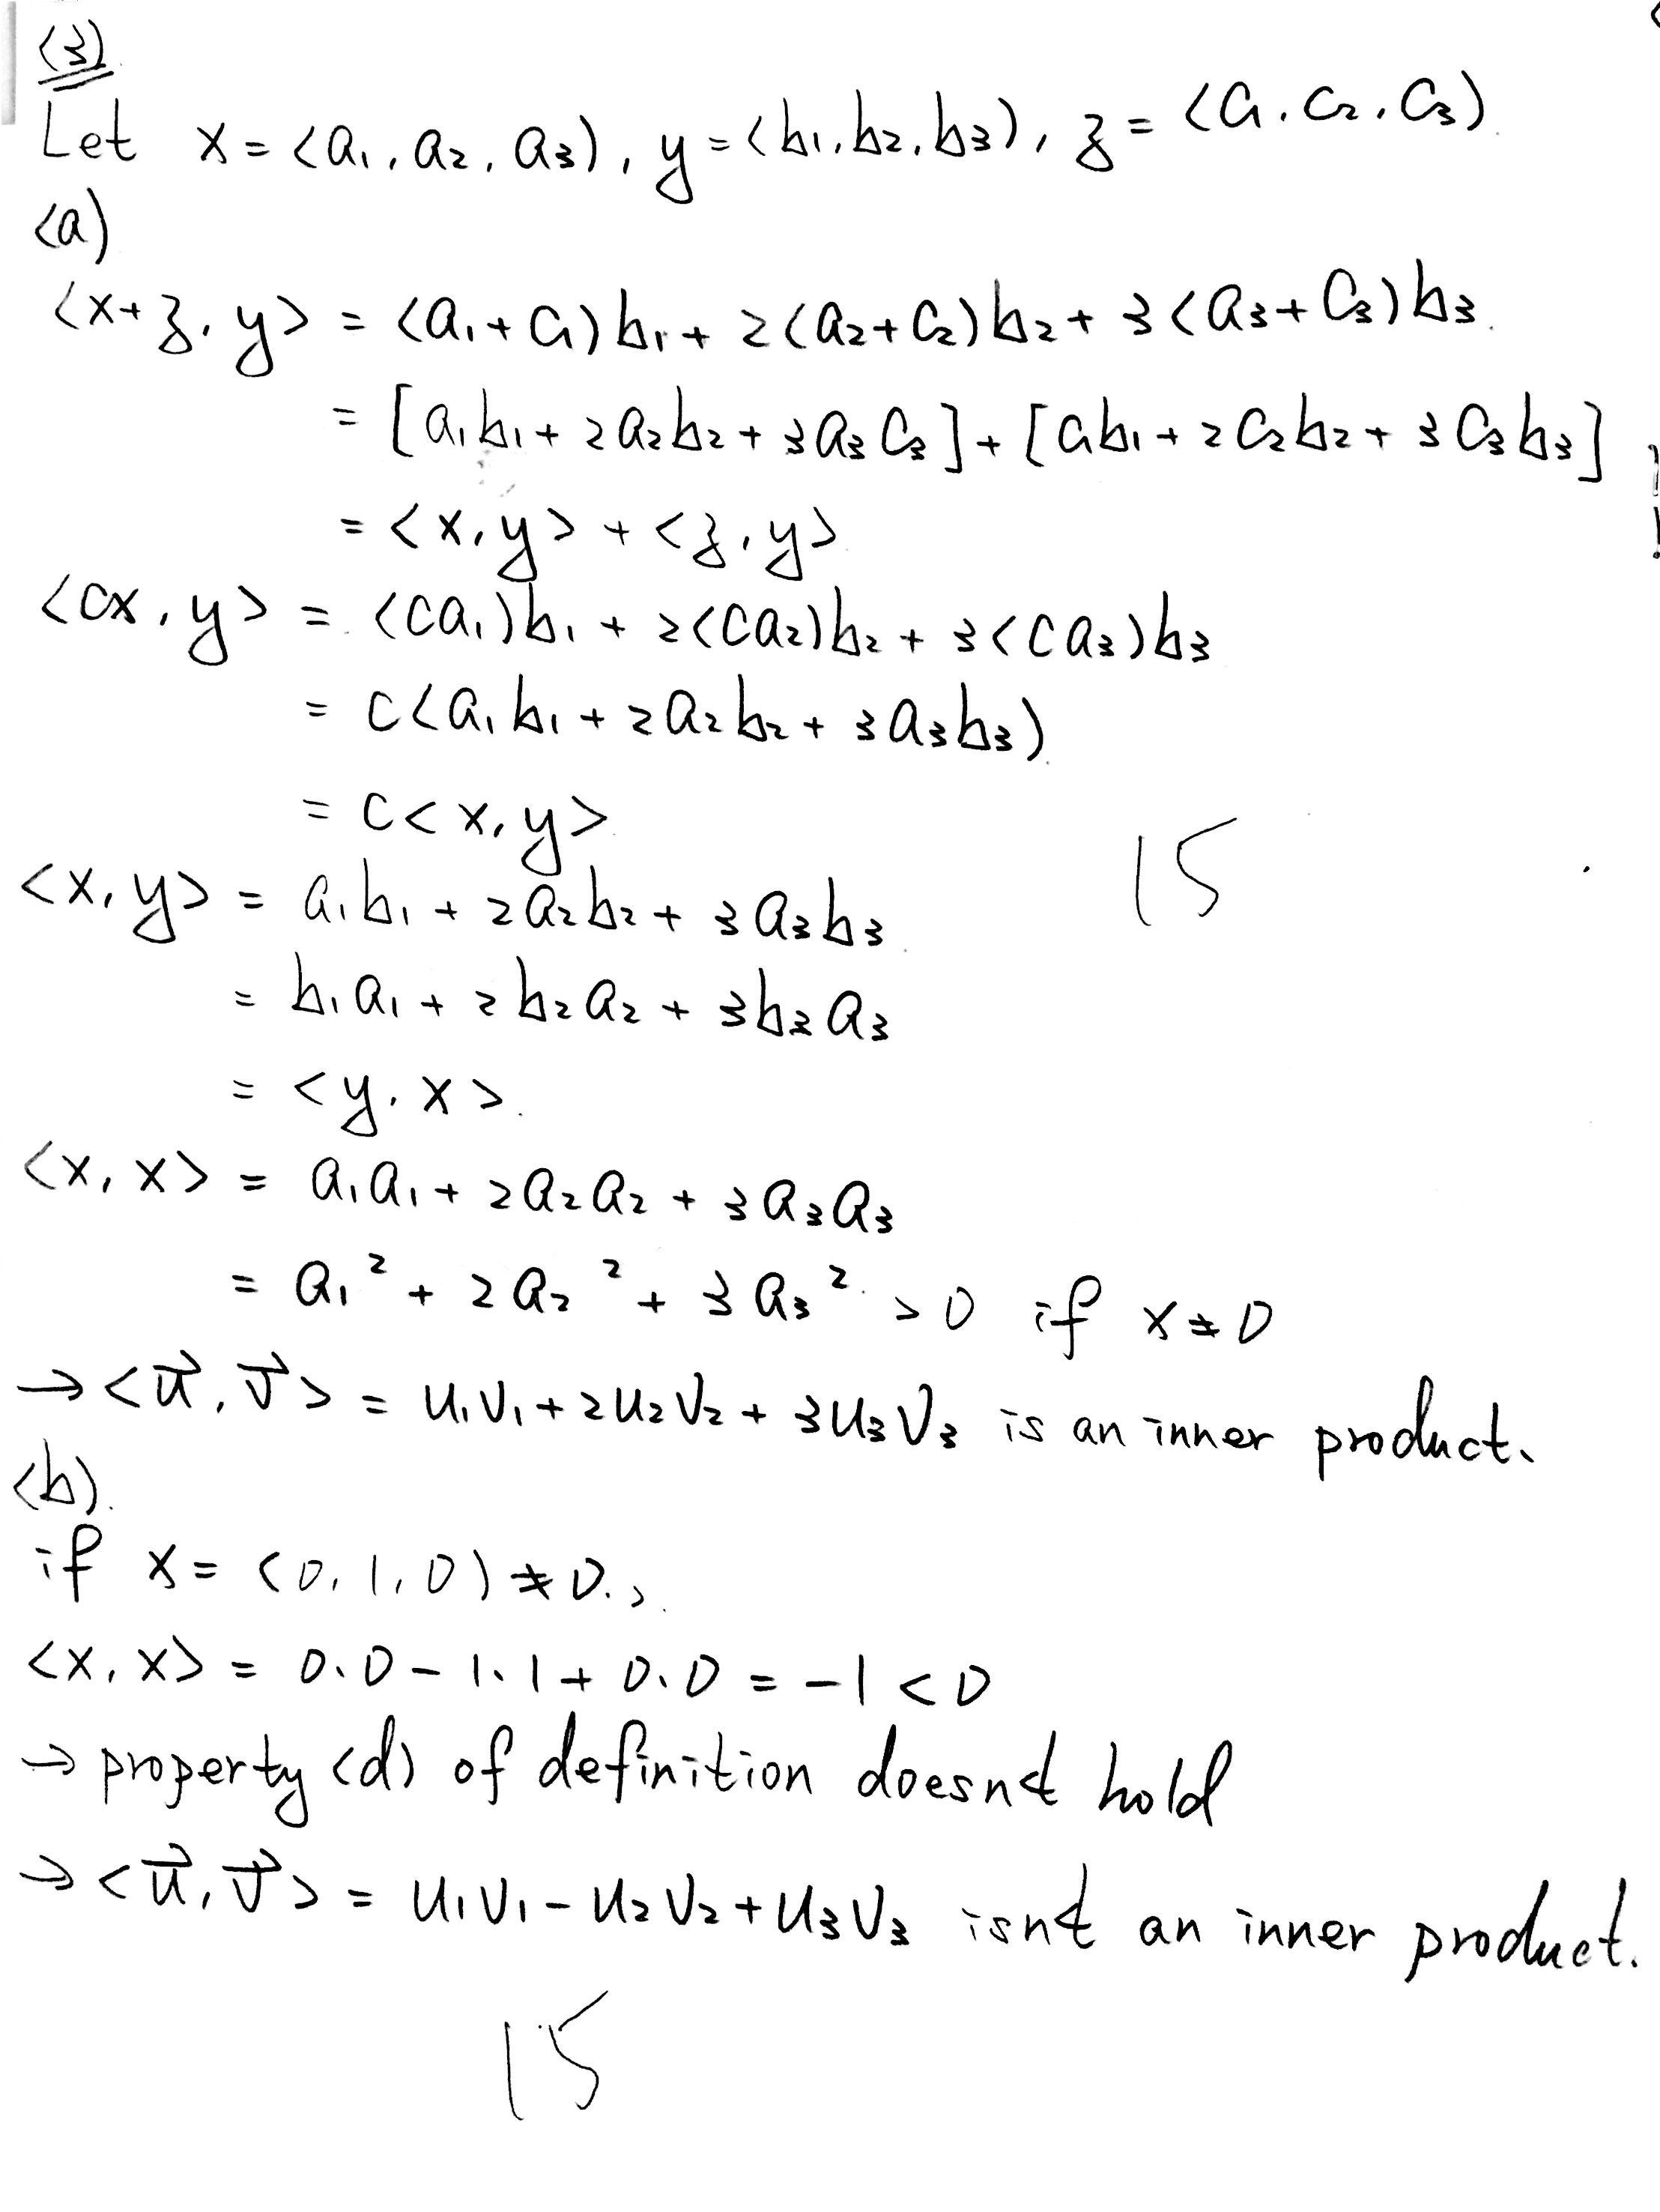 (3)
Let x = (a₁, a₂, a₃), y = (b₁, b₂, b₃), z = (c₁, c₂, c₃).
(a)
<x+z, y> = (a₁+c₁)b₁ + 2(a₂+c₂)b₂ + 3(a₃+c₃)b₃.
= [a₁b₁ + 2a₂b₂ + 3a₃c₃] + [c₁b₁ + 2c₂b₂ + 3c₃b₃]
= <x, y> + <z, y>
<cx, y> = (ca₁)b₁ + 2(ca₂)b₂ + 3(ca₃)b₃
= c(a₁b₁ + 2a₂b₂ + 3a₃b₃)
= c<x, y>
15
<x, y> = a₁b₁ + 2a₂b₂ + 3a₃b₃
= b₁a₁ + 2b₂a₂ + 3b₃a₃
= <y, x>.
<x, x> = a₁a₁ + 2a₂a₂ + 3a₃a₃
= a₁² + 2a₂² + 3a₃² > 0 if x ≠ 0
→ <u⃗, v⃗> = u₁v₁ + 2u₂v₂ + 3u₃v₃ is an inner product.
(b).
if x = (0, 1, 0) ≠ 0.,
<x, x> = 0·0 − 1·1 + 0·0 = −1 < 0
→ property (d) of definition doesnt hold
→ <u⃗, v⃗> = u₁v₁ − u₂v₂ + u₃v₃ isnt an inner product.
15